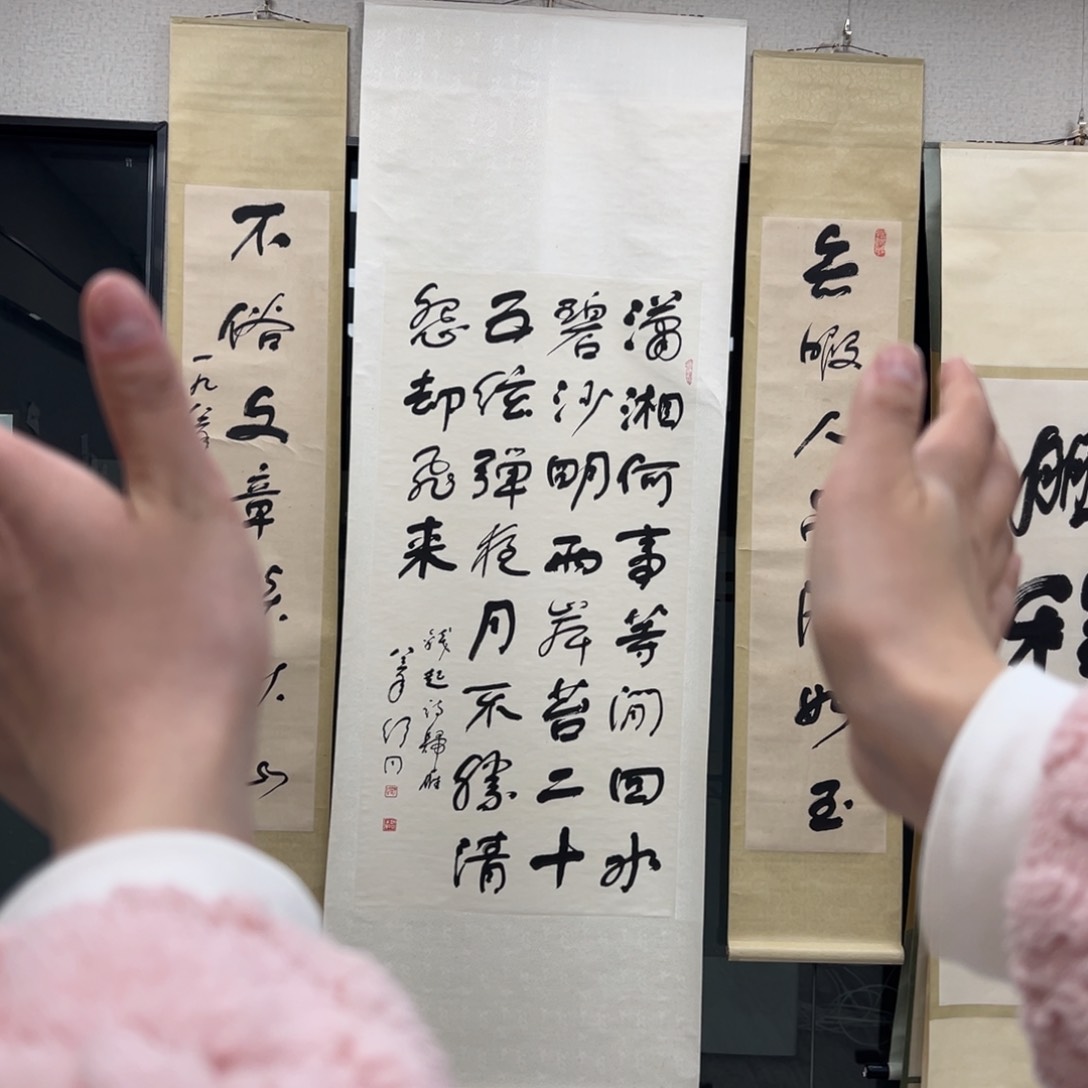 无瑕人
如玉
瀟湘何事等闲回水
碧沙明两岸苔二十
五弦弹夜月不胜清
怨却飞来
钱起诗归雁
舒同
不俗文章
一九